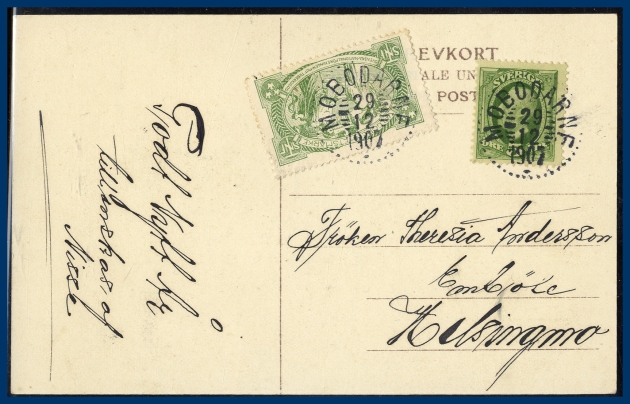 Godt Nytt År
tillönskas af
Nisse
EVKORT
ALE UN
POST
SVERIGE
MOBODARNE
29
12
1907
MOBODARNE
29
12
1907
Fröken Theresia Andersson
Helsingmo